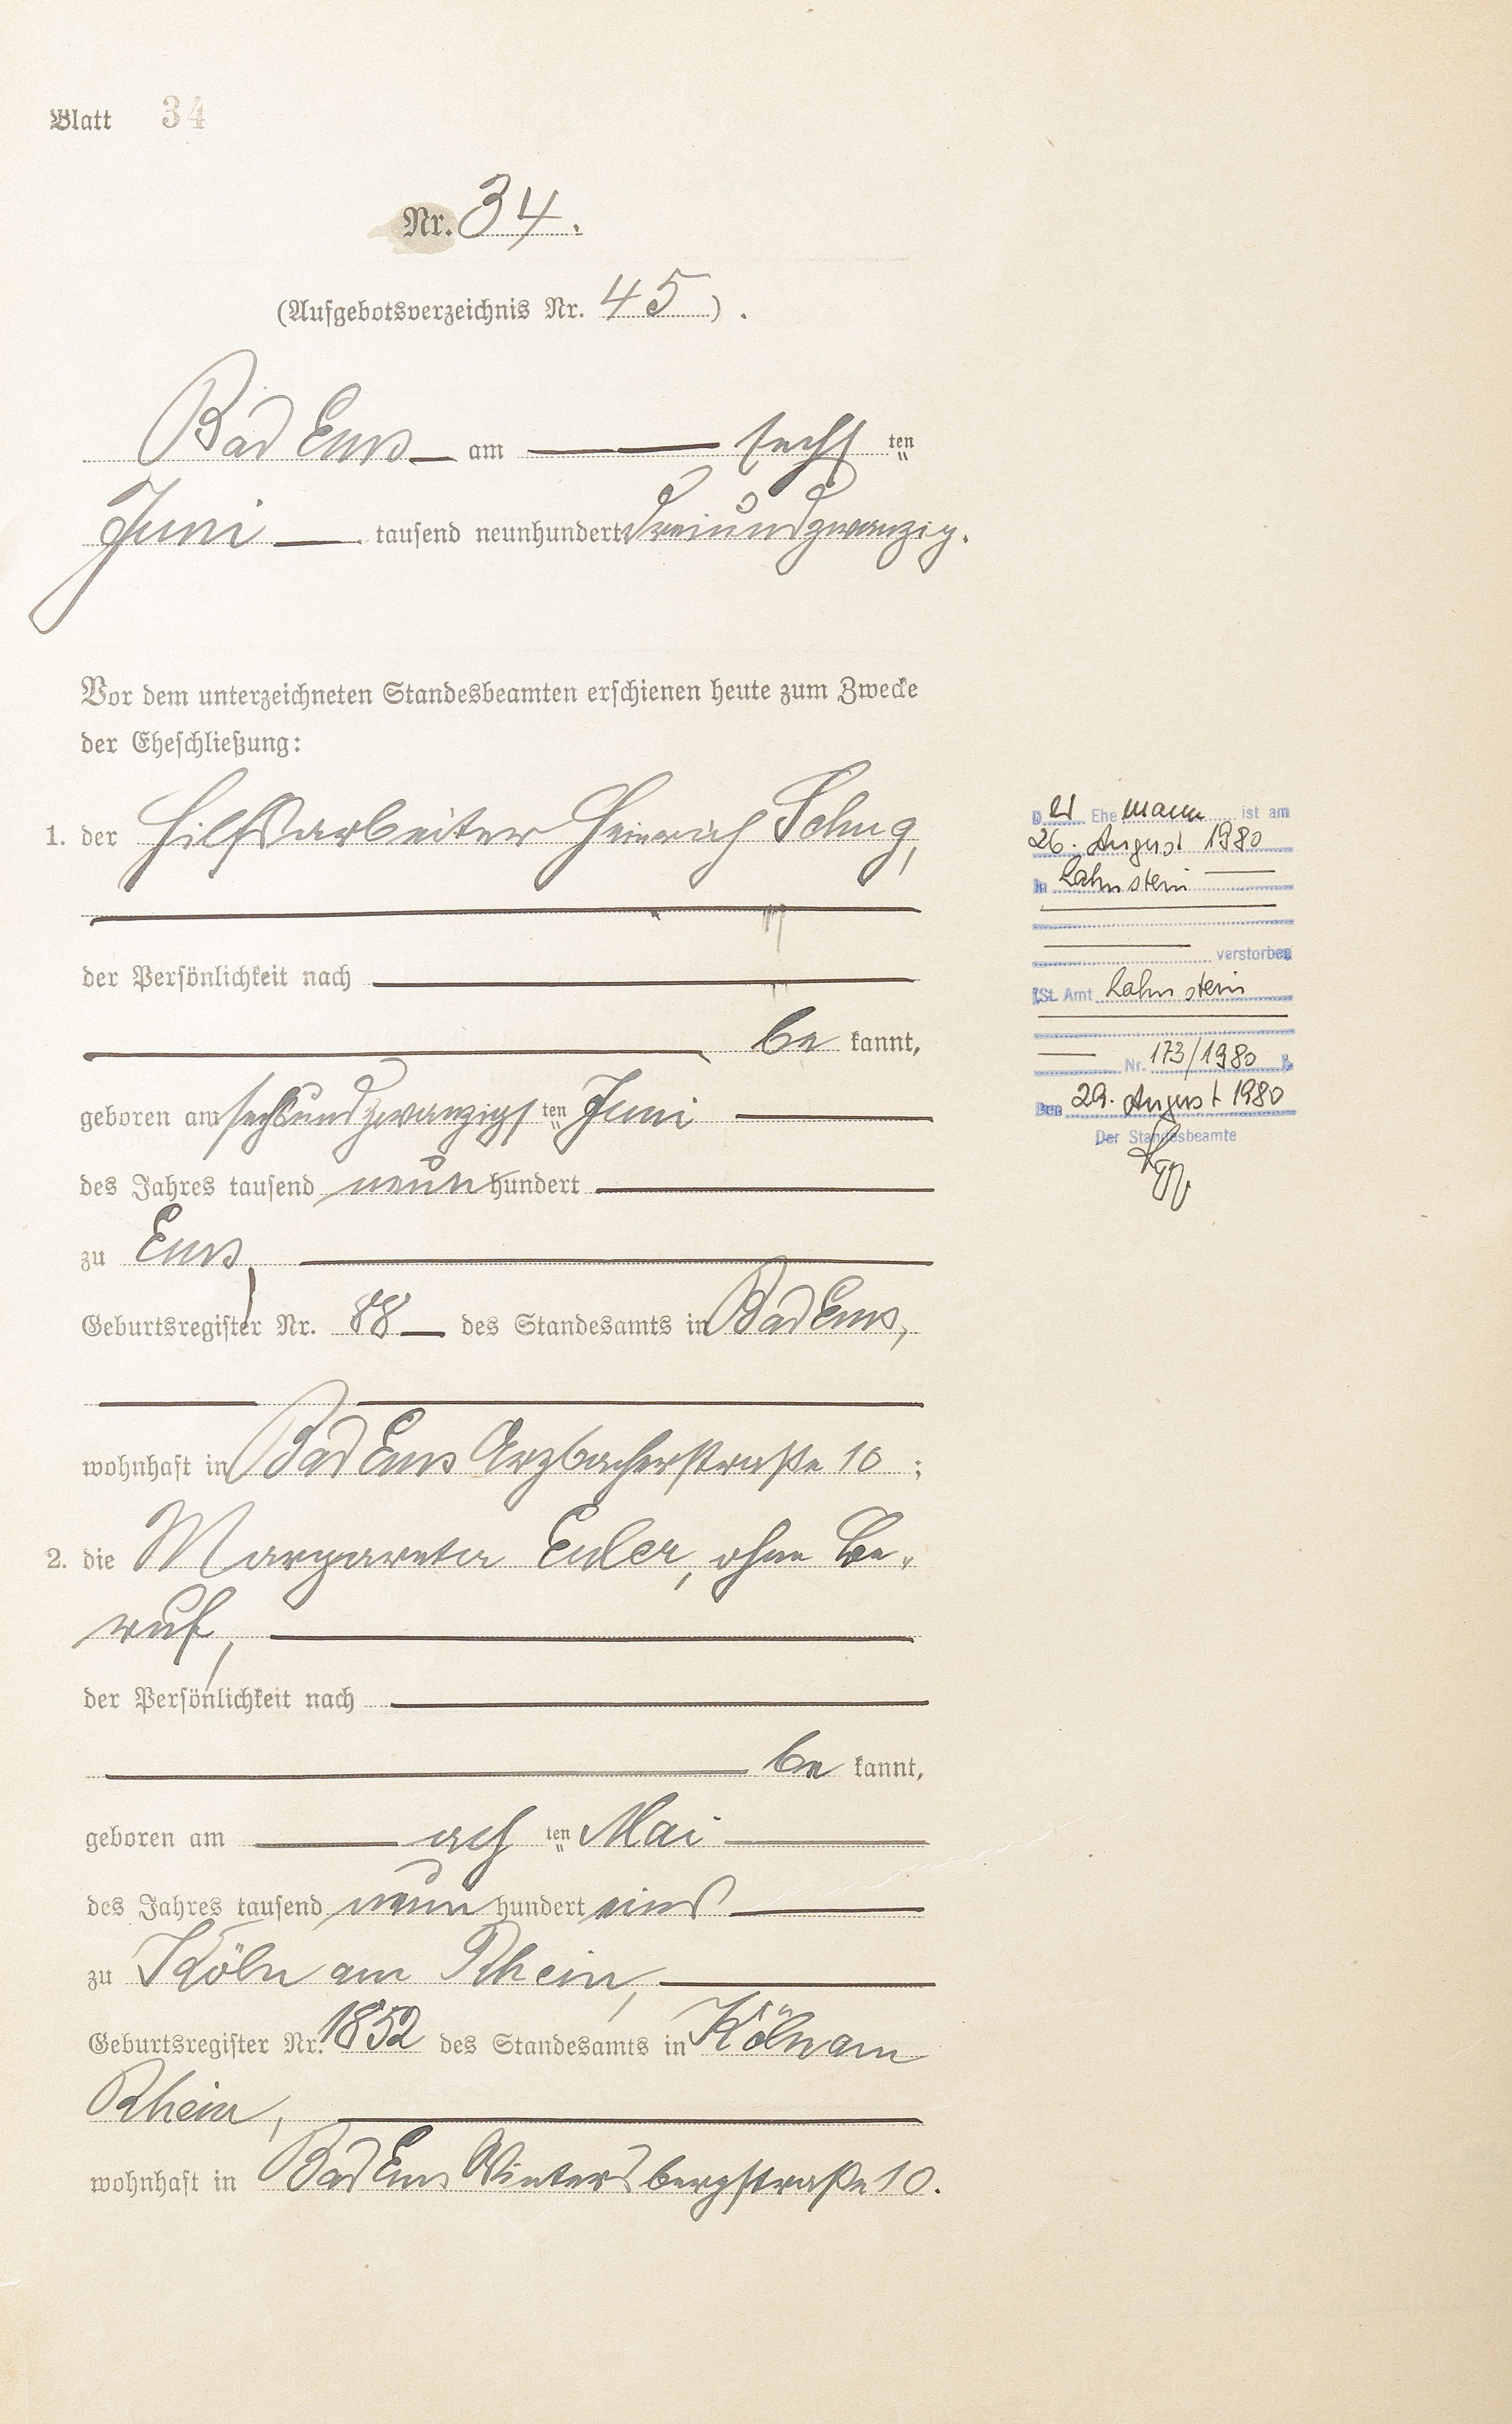 Blatt 34
Nr. 34.
(Aufgebotsverzeichnis Nr. 45).
Bad Ems am sechs ten
Juni tausend neunhundert dreiundzwanzig.
Vor dem unterzeichneten Standesbeamten erschienen heute zum Zwecke
der Eheschließung:
1. der Hilfsarbeiter Heinrich Schug,
der Persönlichkeit nach
be kannt,
geboren am sechsundzwanzigs ten Juni
des Jahres tausend neun hundert
zu Ems,
Geburtsregister Nr. 88 des Standesamts in Bad Ems,
wohnhaft in Bad Ems Arzbacherstraße 10;
2. die Margareta Euler, ohne Be-
ruf,
der Persönlichkeit nach
be kannt,
geboren am ach ten Mai
des Jahres tausend neun hundert eins
zu Köln am Rhein,
Geburtsregister Nr. 1852 des Standesamts in Köln am
Rhein,
wohnhaft in Bad Ems Wintersbergstraße 10.
D er Ehe mann ist am
26. August 1980
in Lahnstein
verstorben
(St. Amt Lahnstein
Nr. 173/1980 ).
Den 29. August 1980
Der Standesbeamte